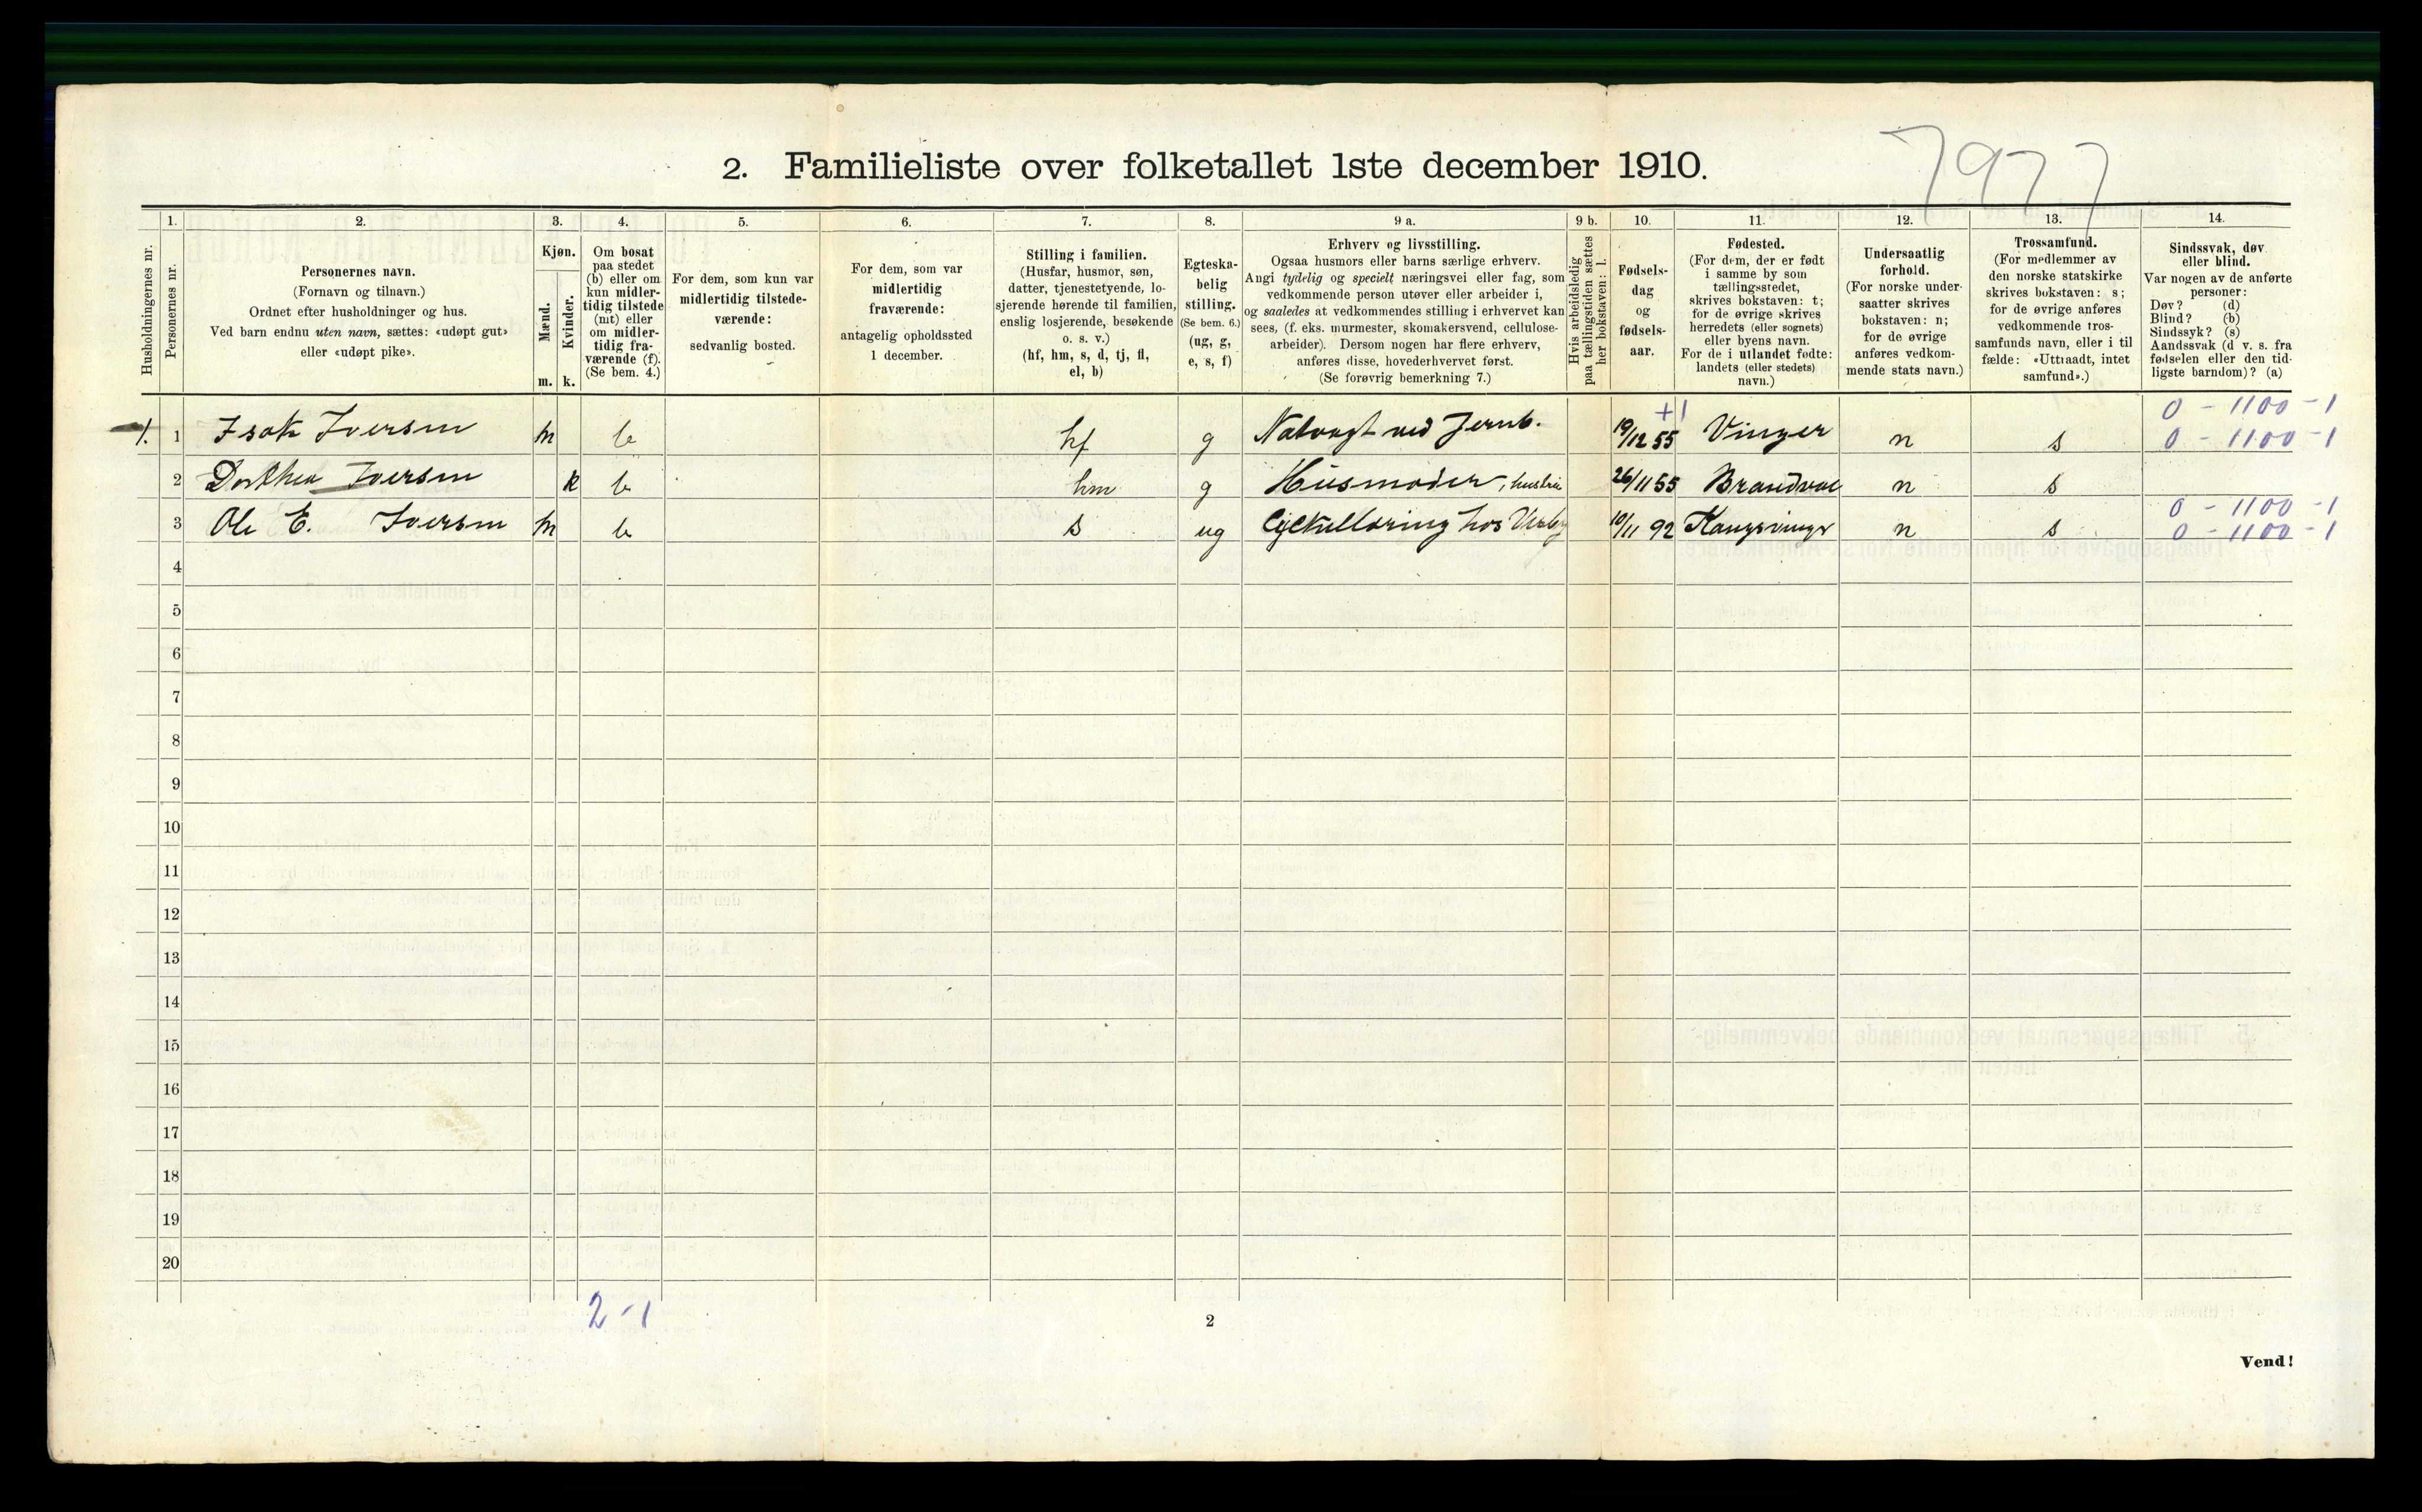 7977
2. Familieliste over folketallet 1ste december 1910.
Husholdningernes nr.
1.
Personernes nr.
2.
Personernes navn.
(Fornavn og tilnavn.)
Ordnet efter husholdninger og hus.
Ved barn endnu uten navn, sættes: «udøpt gut»
eller «udøpt pike».
3.
Kjøn.
Mænd.
m.
Kvinder.
k.
4.
Om bosat
paa stedet
(b) eller om
kun midler-
tidig tilstede
(mt) eller
om midler-
tidig fra-
værende (f).
(Se bem. 4.)
5.
For dem, som kun var
midlertidig tilstede-
værende:
sedvanlig bosted.
6.
For dem, som var
midlertidig
fraværende:
antagelig opholdssted
1 december.
7.
Stilling i familien.
(Husfar, husmor, søn,
datter, tjenestetyende, lo-
sjerende hørende til familien,
enslig losjerende, besøkende
o. s. v.)
(hf, hm, s, d, tj, fl,
el, b)
8.
Egteska-
belig
stilling.
(Se bem. 6.)
(ug, g,
e, s, f)
9 a.
Erhverv og livsstilling.
Ogsaa husmors eller barns særlige erhverv.
Angi tydelig og specielt næringsvei eller fag, som
vedkommende person utøver eller arbeider i,
og saaledes at vedkommendes stilling i erhvervet kan
sees, (f. eks. murmester, skomakersvend, cellulose-
arbeider). Dersom nogen har flere erhverv,
anføres disse, hovederhvervet først.
(Se forøvrig bemerkning 7.)
9 b.
Hvis arbeidsledig
paa tællingstiden sættes
her bokstaven: l.
10.
Fødsels-
dag
og
fødsels-
aar.
11.
Fødested.
(For dem, der er født
i samme by som
tællingsstedet,
skrives bokstaven: t;
for de øvrige skrives
herredets (eller sognets)
eller byens navn.
For de i utlandet fødte:
landets (eller stedets)
navn.)
12.
Undersaatlig
forhold.
(For norske under-
saatter skrives
bokstaven: n;
for de øvrige
anføres vedkom-
mende stats navn.)
13.
Trossamfund.
(For medlemmer av
den norske statskirke
skrives bokstaven: s;
for de øvrige anføres
vedkommende tros-
samfunds navn, eller i til
fælde: «Uttraadt, intet
samfund».)
14.
Sindssvak, døv
eller blind.
Var nogen av de anførte
personer:
Døv? (d)
Blind? (b)
Sindssyk? (s)
Aandssvak (d v. s. fra
fødselen eller den tid-
ligste barndom)? (a)
+1 0 - 1100 - 1
1. 1 Isak Iversen m b hf g Natvagt ved Jernb. 19/12 55 Vinger n s 0 - 1100 - 1
2 Dorthea Iversen k b hm g Husmoder, hustru 26/11 55 Brandval n s
0 - 1100 - 1
3 Ole E. Iversen m b s ug hos 10/11 92 Kongsvinger n s 0 - 1100 - 1
4
5
6
7
8
9
10
11
12
13
14
15
16
17
18
19
20
2 - 1
2
Vend!